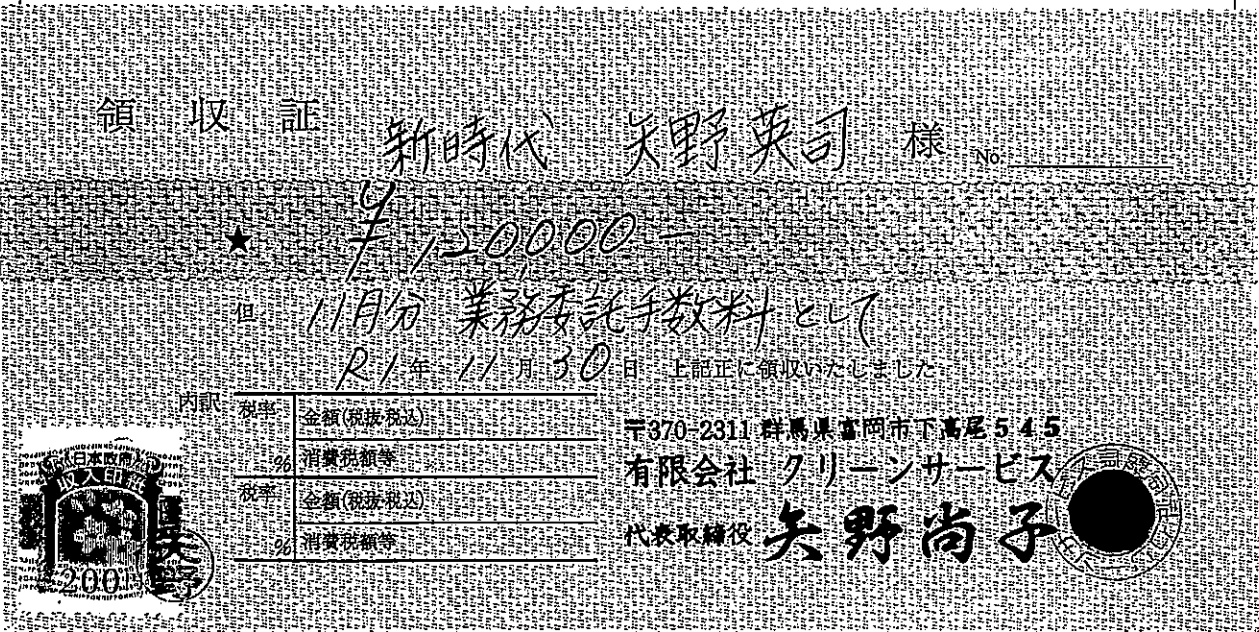 領収証
新時代 矢野英司 様 No.
★ ¥150,000−
但 11月分 業務委託手数料として
R1年 11月 30日 上記正に領収いたしました
内訳
税率 金額(税抜・税込)
% 消費税額等
税率 金額(税抜・税込)
% 消費税額等
日本政府
収入印紙
200円
矢野
〒370-2311 群馬県富岡市下高尾545
有限会社 クリーンサービス
代表取締役 矢野尚子